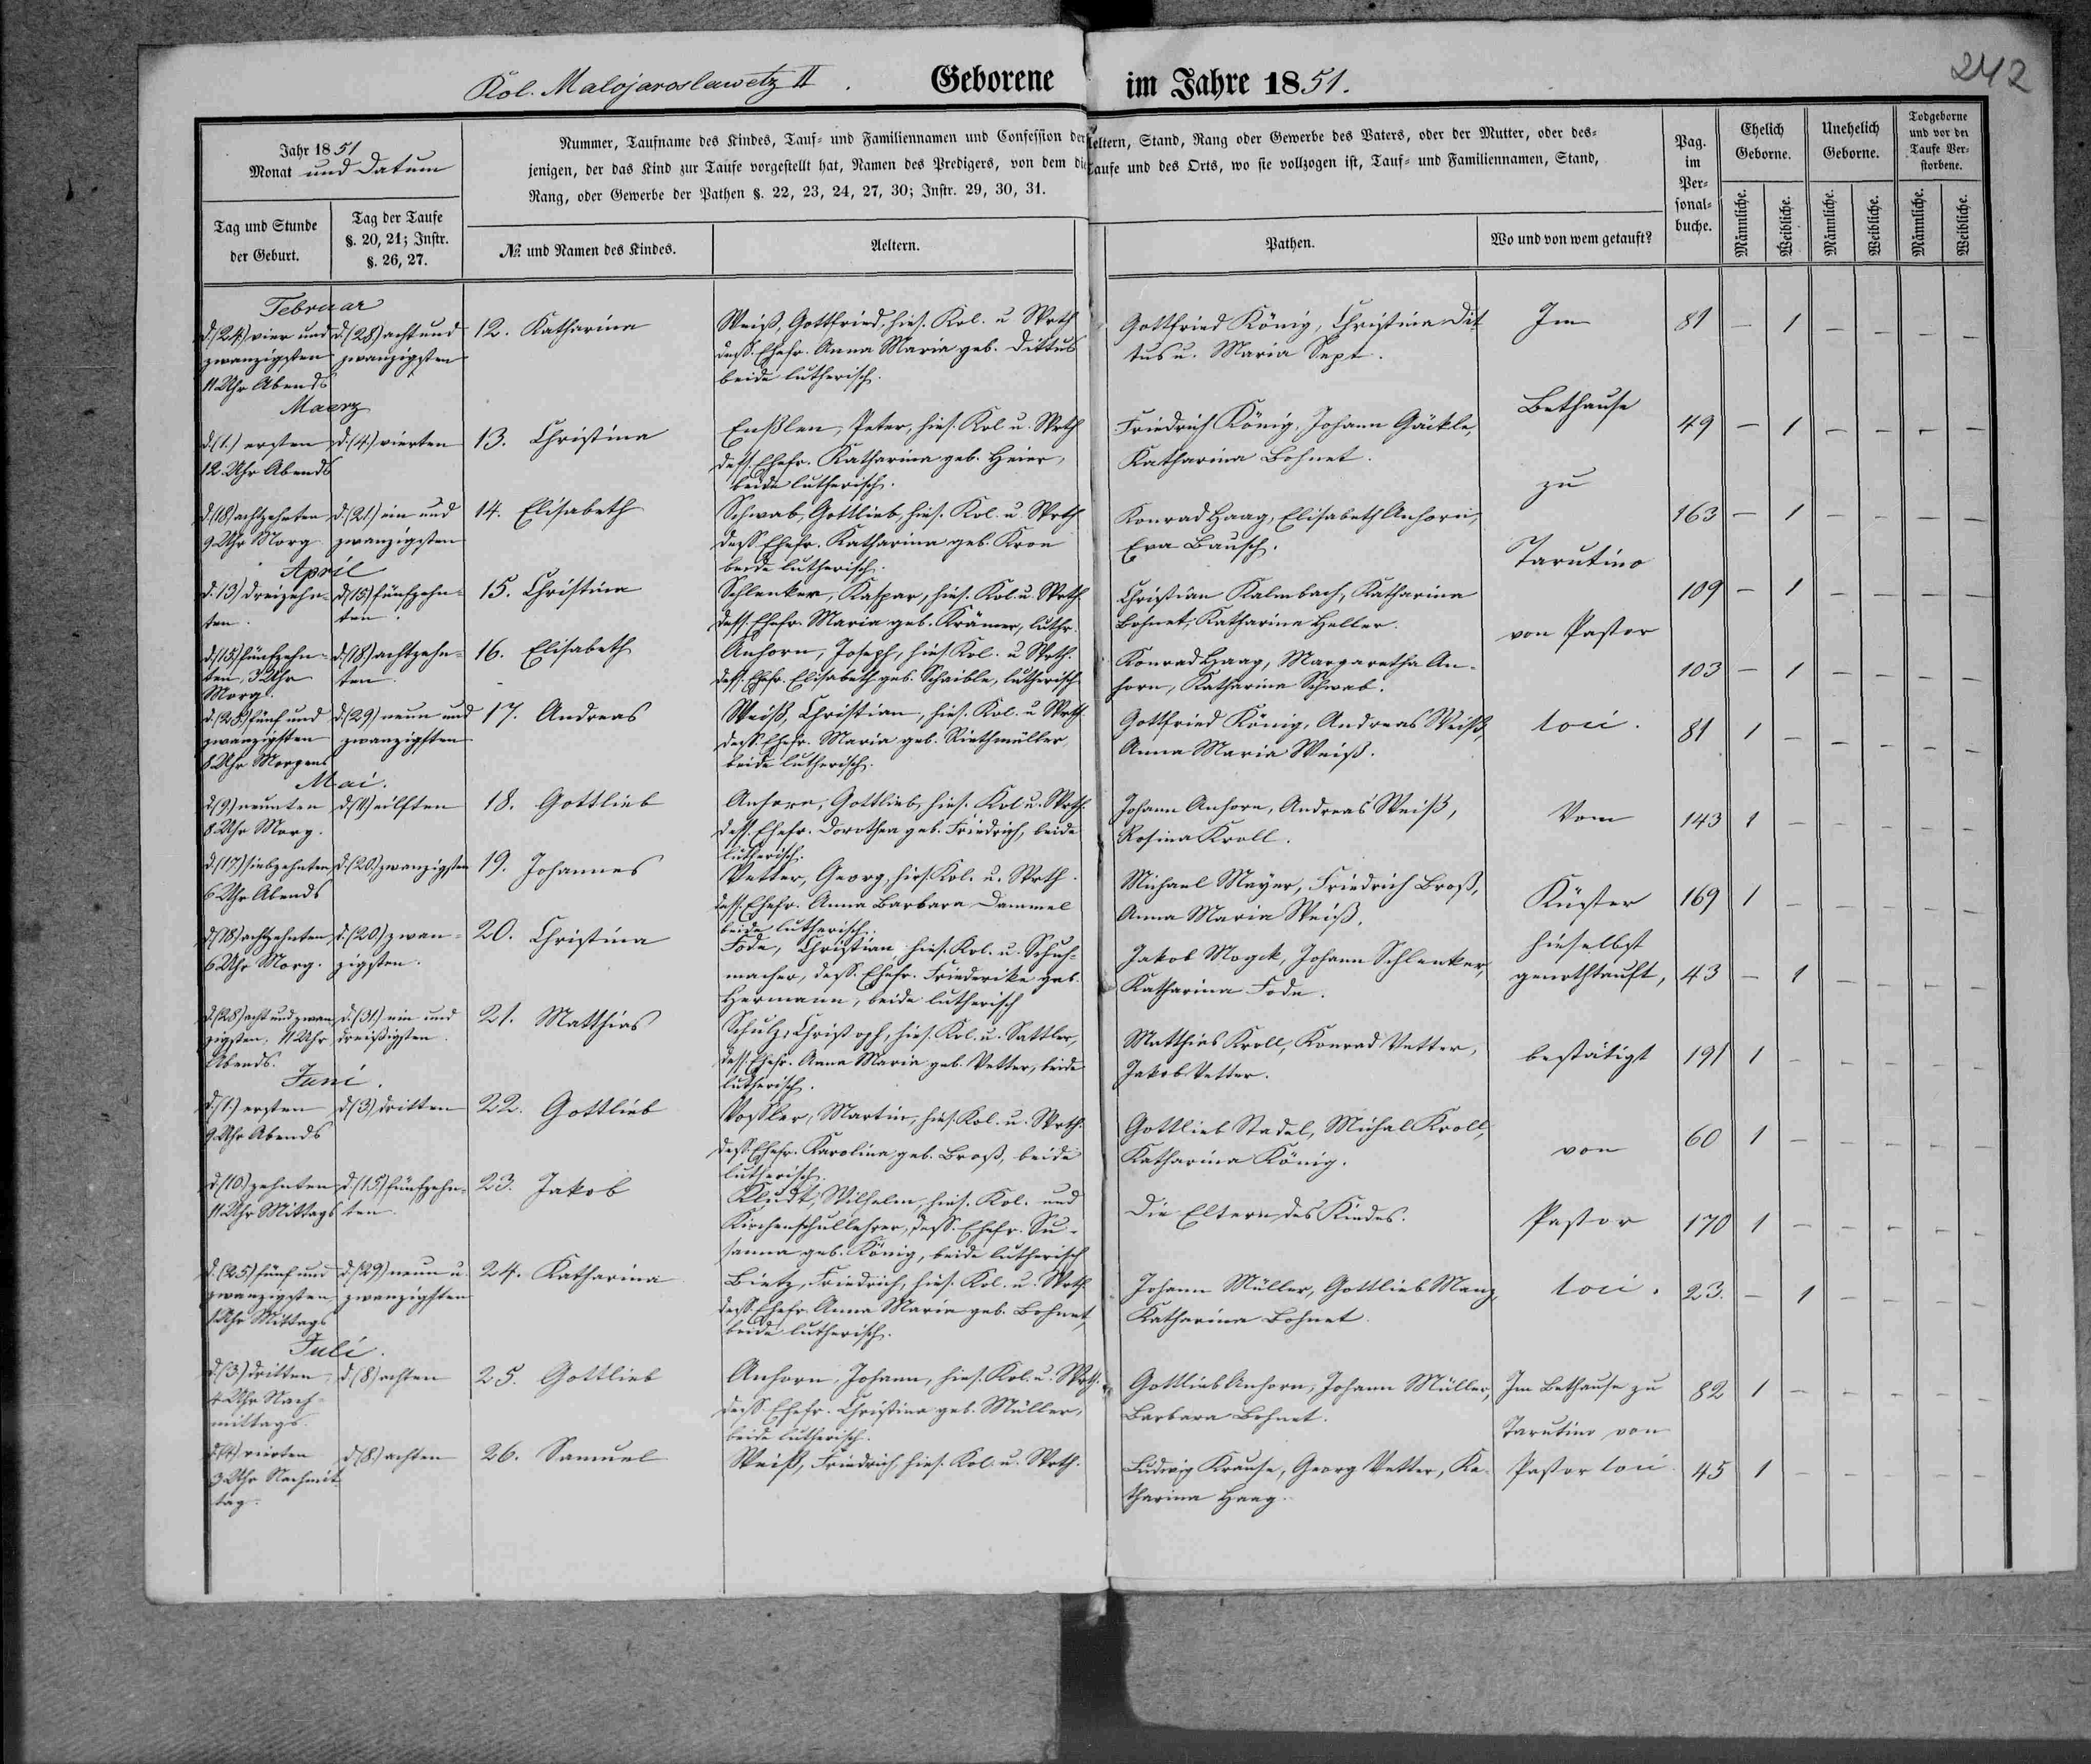 242
Kol. Malojaroslawetz II. Geborene im Jahre 1851.
Jahr 1851
Monat und Datum
Tag und Stunde der Geburt.
Tag der Taufe §. 20, 21; Instr. §. 26, 27.
Nummer, Taufname des Kindes, Tauf- und Familiennamen und Confession der Aeltern, Stand, Rang oder Gewerbe des Vaters, oder der Mutter, oder des-
jenigen, der das Kind zur Taufe vorgestellt hat, Namen des Predigers, von dem die Taufe und des Orts, wo sie vollzogen ist, Tauf- und Familiennamen, Stand,
Rang, oder Gewerbe der Pathen §. 22, 23, 24, 27, 30; Instr. 29, 30, 31.
№ und Namen des Kindes.
Aeltern.
Pathen.
Wo und von wem getauft?
Pag. im Per-sonal-buche.
Ehelich Geborne.
Unehelich Geborne.
Todgeborne und vor der Taufe Ver-storbene.
Männliche. Weibliche. Männliche. Weibliche. Männliche. Weibliche.
Februar
d. (24) vier und zwanzigsten 11 Uhr Abends
d. (28) acht und zwanzigsten
12. Katharina
Weiß, Gottfried, hies. Kol. u. Wrth
dess. Ehefr. Anna Maria geb. Dittus
beide lutherisch.
Gottfried König, Christina Dit
tus u. Maria Sept.
Im
81 – 1 – – – –
Maerz
d. (1.) ersten 12 Uhr Abends
d. (4.) vierten
13. Christina
Enßlen, Peter, hies. Kol u. Wrth
dess. Ehefr. Katharina geb. Heier,
beide lutherisch.
Friedrich König, Johann Gäckle,
Katharina Bohnet.
Bethause
49 – 1 – – – –
d. (18) achtzehnten 9 Uhr Morg.
d. (21) ein und zwanzigsten
14. Elisabeth
Schwab, Gottlieb, hies. Kol. u. Wrth
dess Ehefr. Katharina geb. Kron
beide lutherisch.
Konrad Haag, Elisabeth Anhorn,
Eva Bausch.
zu
163 – 1 – – – –
April
d. 13) dreizehn-ten.
d. (15) fünfzehn-ten.
15. Christina
Schlenker, Kaspar, hies. Kol. u. Wrth.
dess. Ehefr. Maria geb. Krämer, luthr.
Christian Kalmbach, Katharina
Bohnet, Katharina Heller.
Tarutino
109 – 1 – – – –
d. (15) fünfzehn-ten, 3 Uhr Morg.
d. (18) achtzehn-ten.
16. Elisabeth
Anhorn, Joseph, hies. Kol. u Wrth.
dess. Ehefr. Elisabeth geb. Schaible, lutherisch
Konrad Haag, Margaretha An-
horn, Katharina Schwab.
von Pastor
103 – 1 – – – –
d. (25) fünf und zwanzigsten 8 Uhr Morgens
d. (29) neun und zwanzigsten
17. Andreas
Weiß, Christian, hies. Kol. u Wrth.
dess. Ehefr. Maria geb. Riethmüller,
beide lutherisch.
Gottfried König, Andreas Weiß,
Anna Maria Weiß.
loci.
81 1 – – – – –
Mai.
d. (9) neunten 8 Uhr Morg.
d. (11) eilften
18. Gottlieb
Anhorn, Gottlieb, hies. Kol u. Wrth.
dess. Ehefr. Dorothea geb. Friedrich, beide
lutherisch.
Johann Anhorn, Andreas Weiß,
Rosina Kroll.
Vom
143 1 – – – – –
d. (17) siebzehnten 6 Uhr Abends
d. (20.) zwanzigsten
19. Johannes
Vetter, Georg, hies. Kol. u. Wrth.
dess. Ehefr. Anna Barbara Dammel
beide lutherisch.
Michael Mayer, Friedrich Broß,
Anna Maria Weiß.
Küster
169 1 – – – – –
d. (18) achtzehnten 6 Uhr Morg.
d. (20) zwan-zigsten.
20. Christina
Fode, Christian, hies. Kol. u. Schuh-
macher, dess. Ehefr. Friederike geb.
Hermann, beide lutherisch
Jakob Mogck, Johann Schlenker,
Katharina Fode.
hieselbst
genothtauft,
43 – 1 – – – –
d. (28) acht und zwan-zigsten. 11 Uhr Abends.
d. (31) ein und dreißigsten.
21. Matthias
Schulz, Christoph, hies. Kol. u. Sattler,
dess. Ehefr. Anna Maria geb. Vetter, beide
lutherisch.
Matthias Kroll, Konrad Vetter,
Jakob Vetter.
bestätigt
191 1 – – – – –
Juni.
d. (1.) ersten 9 Uhr Abends
d. (3) dritten
22. Gottlieb
Voßler, Martin, hies. Kol. u. Wrth.
dess Ehefr. Karolina geb. Broß, beide
lutherisch.
Gottlieb Stadel, Michal Kroll,
Katharina König.
von
60 1 – – – – –
d. (10) zehnten 11 Uhr Mittags
d. (15) fünfzehn-ten.
23. Jakob
Kludt, Wilhelm, hies. Kol. und
Kirchenschullehrer, dess. Ehefr. Su-
sanna geb. König, beide lutherisch
Die Eltern des Kindes.
Pastor
170 1 – – – – –
d. (25) fünf und zwanzigsten 1 Uhr Mittags
d. (29) neun u. zwanzigsten
24. Katharina
Bietz, Friedrich, hies. Kol. u. Wrth.
dess. Ehefr. Anna Maria geb. Bohnet,
beide lutherisch.
Johann Müller, Gottlieb Manz,
Katharina Bohnet.
loci.
23. – 1 – – – –
Juli.
d. (3) dritten, 4 Uhr Nach-mittags.
d. (8) achten
25. Gottlieb
Anhorn, Johann, hies. Kol. u. Wrth.
dess Ehefr. Christina geb. Müller,
beide lutherisch.
Gottlieb Anhorn, Johann Müller,
Barbara Bohnet.
Im Bethause zu
Tarutino von
82 1 – – – – –
d. (4) vierten 3 Uhr Nachmit-tag.
d. (8.) achten
26. Samuel
Weiß, Friedrich, hies. Kol. u. Wrth.
Ludwig Krause, Georg Vetter, Ka-
tharina Haag.
Pastor loci.
45 1 – – – – –